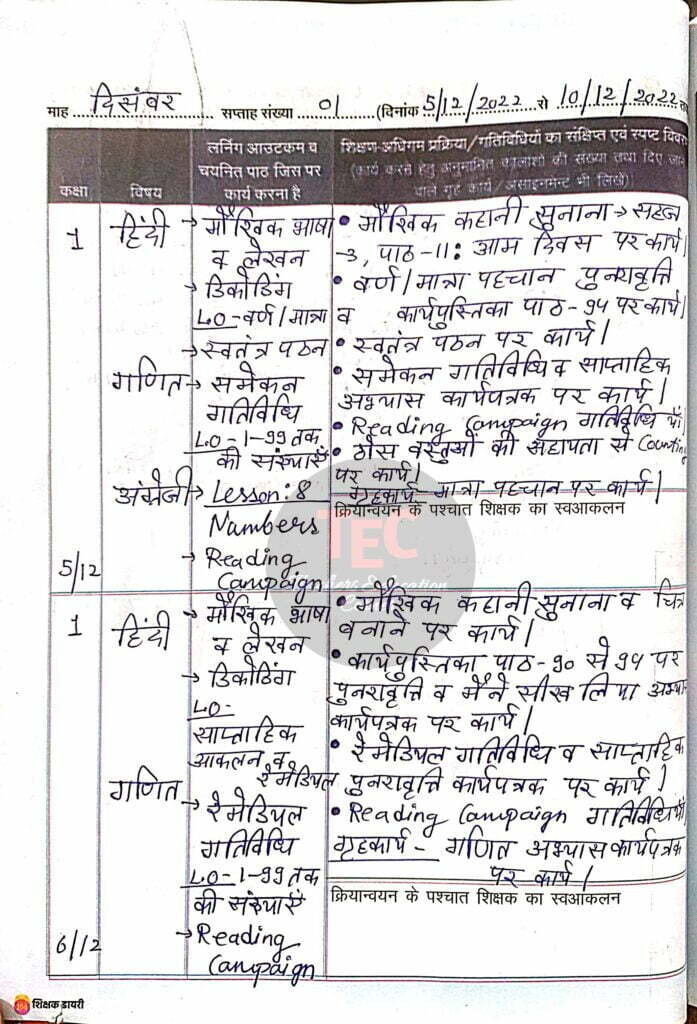 माह दिसंबर सप्ताह संख्या 01 (दिनांक 5/12/2022 से 10/12/2022
कक्षा
विषय
लर्निंग आउटकम व
चयनित पाठ जिस पर
कार्य करना है
शिक्षण-अधिगम प्रक्रिया/गतिविधियों का संक्षिप्त एवं स्पष्ट
(कार्य करने हेतु अनुमानित कालांशों की संख्या तथा दिए
वाले गृह कार्य/असाइनमेंट भी लिखें)
1
हिंदी
→ मौखिक भाषा
व लेखन
→ डिकोडिंग
LO-वर्ण/मात्रा
→ स्वतंत्र पठन
गणित
→ समेकन
गतिविधि
LO-1-99 तक
की संख्याएँ
अंग्रेजी
→ Lesson:8
Numbers
→ Reading
Campaign
5/12
• मौखिक कहानी सुनाना → सहज
-3, पाठ-11: आम दिवस पर कार्य।
• वर्ण/मात्रा पहचान पुनरावृत्ति
व कार्यपुस्तिका पाठ-94 पर कार्य।
• स्वतंत्र पठन पर कार्य।
• समेकन गतिविधि व साप्ताहिक
अभ्यास कार्यपत्रक पर कार्य।
• Reading Campaign गतिविधियाँ।
• ठोस वस्तुओं की सहायता से Counting
पर कार्य।
गृहकार्य- मात्रा पहचान पर कार्य।
क्रियान्वयन के पश्चात शिक्षक का स्वआकलन
TEC
1
हिंदी
→ मौखिक भाषा
व लेखन
→ डिकोडिंग
LO-
साप्ताहिक
आकलन व
रेमेडियल
गणित
→ रेमेडियल
गतिविधि
LO-1-99 तक
की संख्याएँ
→ Reading
Campaign
6/12
• मौखिक कहानी सुनाना व चित्र
बनाने पर कार्य।
• कार्यपुस्तिका पाठ-90 से 94 पर
पुनरावृत्ति व मैंने सीख लिया
कार्यपत्रक पर कार्य।
• रेमेडियल गतिविधि व साप्ताहिक
पुनरावृत्ति कार्यपत्रक पर कार्य।
• Reading Campaign गतिविधियाँ
गृहकार्य- गणित अभ्यास कार्यपत्रक
पर कार्य।
क्रियान्वयन के पश्चात शिक्षक का स्वआकलन
शिक्षक डायरी